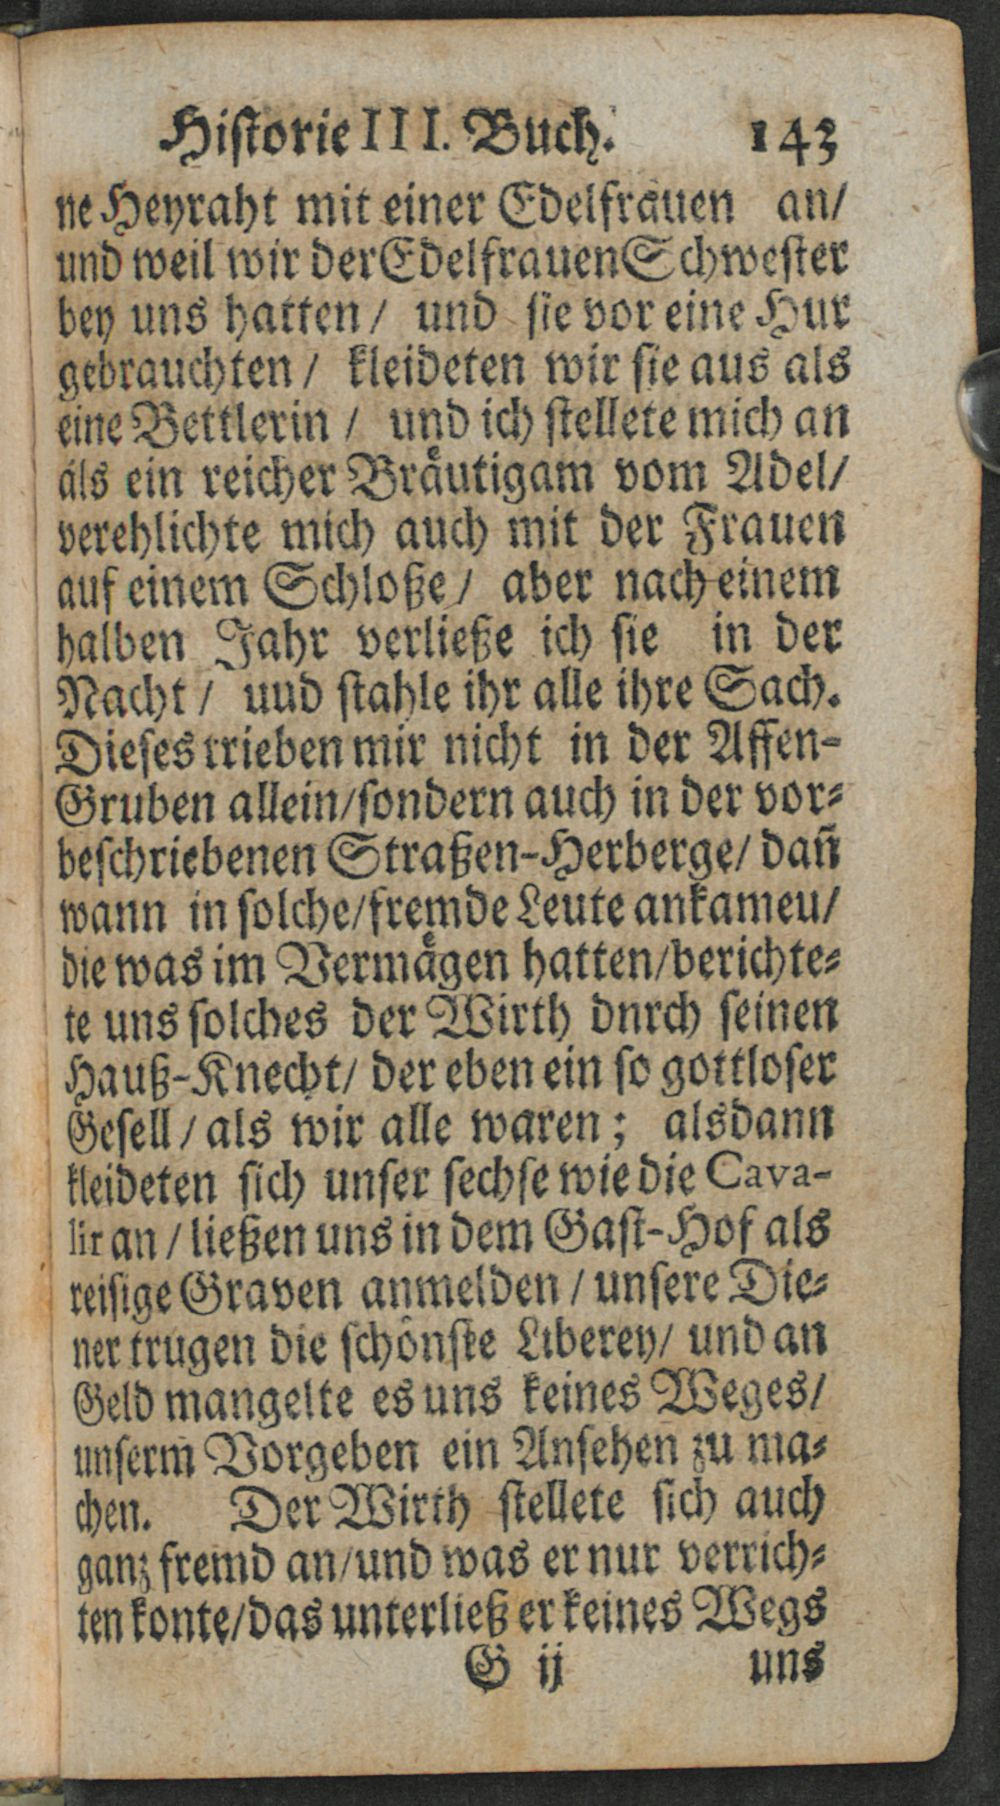 Historie III. Buch. 143
ne Heyraht mit einer Edelfrauen an/
und weil wir der Edelfrauen Schwester
bey uns hatten / und sie vor eine Hur
gebrauchten / kleideten wir sie aus als
eine Bettlerin / und ich stellete mich an
als ein reicher Bräutigam vom Adel/
verehlichte mich auch mit der Frauen
auf einem Schloße / aber nach einem
halben Jahr verließe ich sie in der
Nacht / uud stahle ihr alle ihre Sach.
Dieses trieben mir nicht in der Affen-
Gruben allein/sondern auch in der vor-
beschriebenen Straßen-Herberge/ dañ
wann in solche/fremde Leute ankameu/
die was im Vermägen hatten/berichte-
te uns solches der Wirth dnrch seinen
Hauß-Knecht/ der eben ein so gottloser
Gesell / als wir alle waren; alsdann
kleideten sich unser sechse wie die Cava-
lir an / ließen uns in dem Gast-Hof als
reisige Graven anmelden / unsere Die-
ner trugen die schönste Liberey/ und an
Geld mangelte es uns keines Weges/
unserm Vorgeben ein Ansehen zu ma-
chen. Der Wirth stellete sich auch
ganz fremd an/und was er nur verrich-
ten konte/das unterließ er keines Wegs
G ij uns